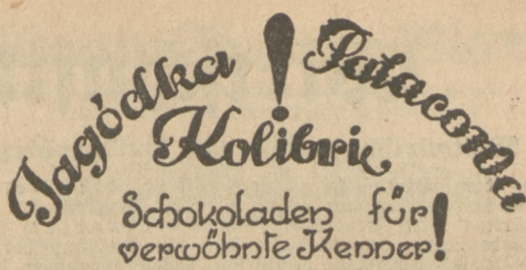 Jagódka ! Patacoma
Kolibri
Schokoladen für
verwöhnte Kenner!